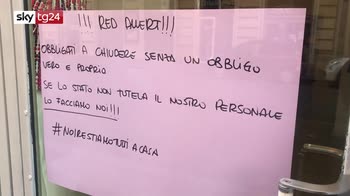 sky tg24
!!! RED ALERT!!!
OBBLIGATI A CHIUDERE SENZA UN OBBLIGO
VERO E PROPRIO
SE LO STATO NON TUTELA IL NOSTRO PERSONALE
LO FACCIAMO NOI!!!
#NOIRESTIAMOTUTTIACASA